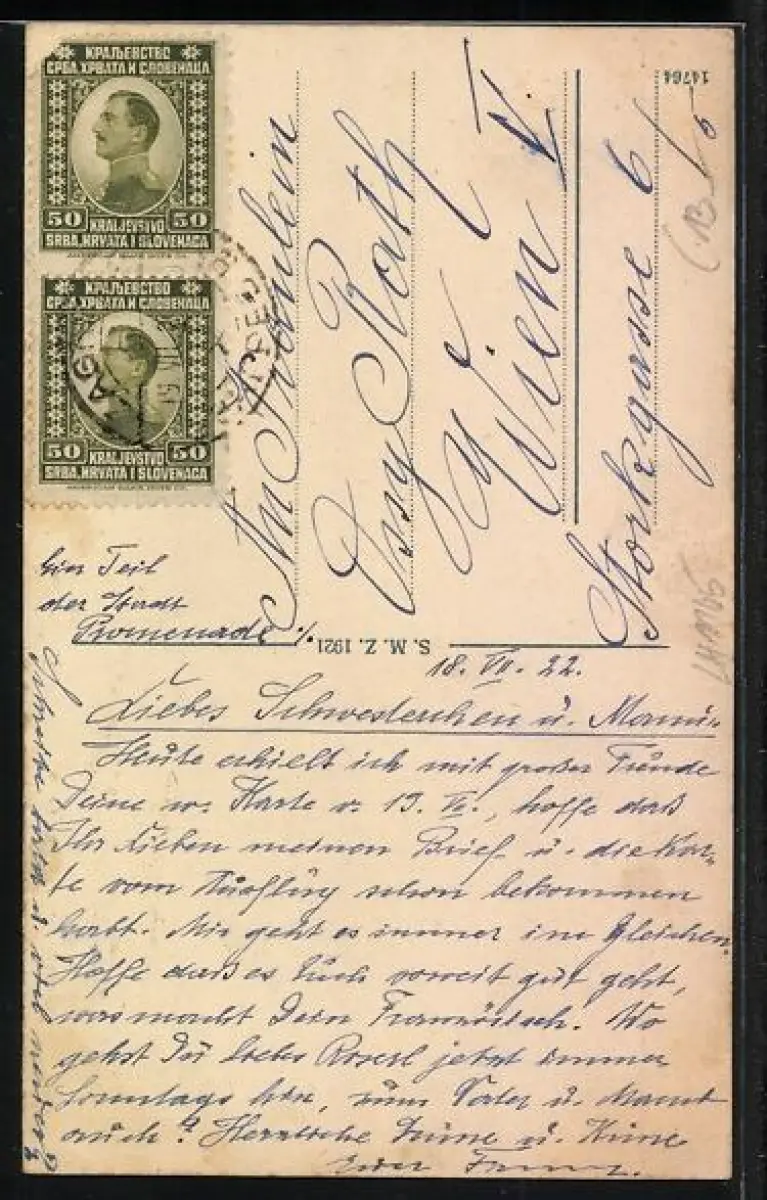 КРАЉЕВСТВО
СРБА, ХРВАТА И СЛОВЕНАЦА
50 KRALJEVSTVO 50
SRBA, HRVATA I SLOVENACA
КРАЉЕВСТВО
СРБА, ХРВАТА И СЛОВЕНАЦА
50 KRALJEVSTVO 50
SRBA, HRVATA I SLOVENACA
ZAGREB
14764
An Fräulein
Rath
Wien V.
Storkgasse 6
S. M. Z. 1921
Ein Teil
der Stadt
Promenade
18. VII. 22.
Liebes Schwesterchen u. Mami
Heute erhielt ich mit großer Freude
Deine w. Karte v. 13. hoffe daß
Ihr Lieben meinen Brief u. die Kar-
te vom Ausflug schon bekommen
habt. Mir geht es immer im Gleichen.
Hoffe daß es Euch soweit gut geht,
was macht Dein Französisch. Wo
gehst Du liebes Roserl jetzt immer
Sonntags hin, zum Vater u. Mama
auch? Herzliche Grüße u. Küsse
Euer Franz.